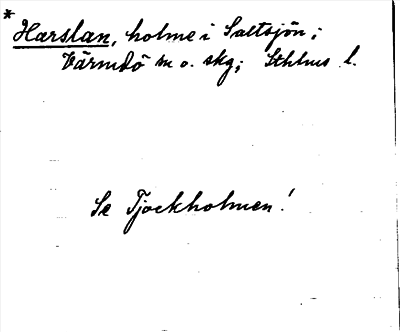 * Harslan, holme i Saltsjön;
Värmdö sn o. skg; Sthlms l.
Se Tjockholmen!